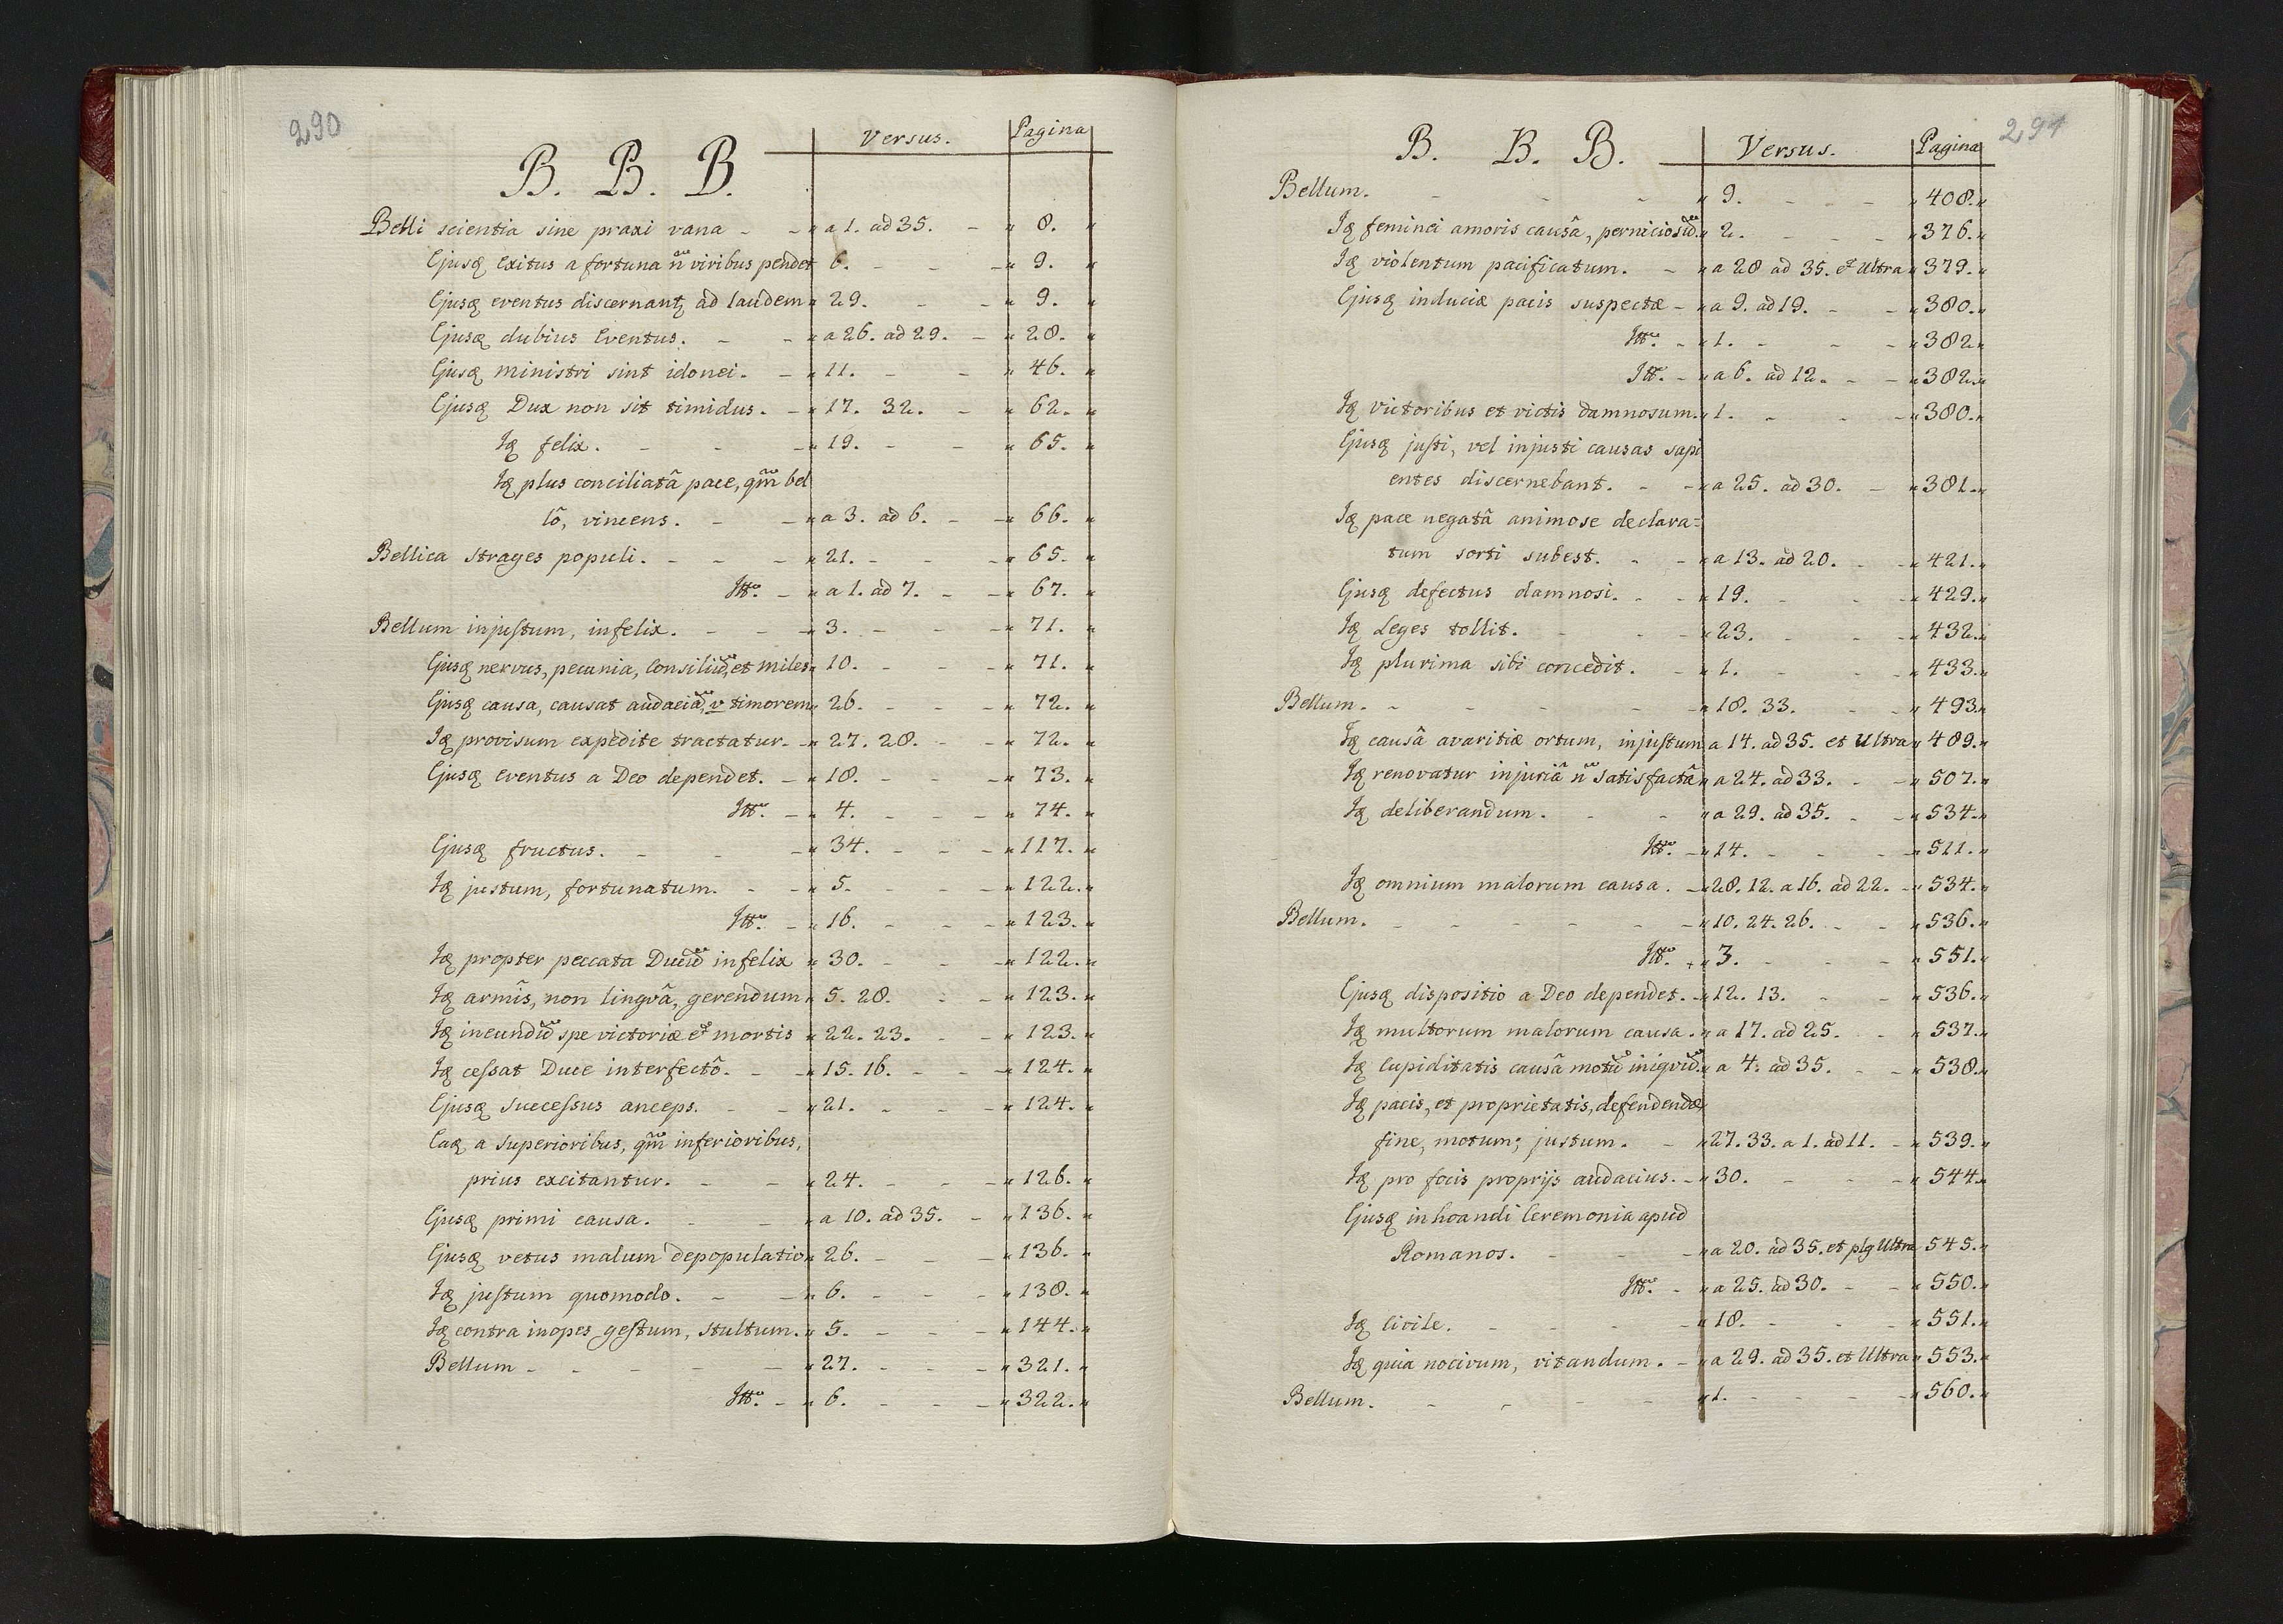 290
B. B. B. Versus. Pagina
Belli scientia sine praxi vana - - „ a 1. ad 35. - „ 8. „
Ejusq exitus a fortuna ñ viribus pendet 6. - - - „ 9. „
Ejusq eventus discernant, ad laudem „ 29. - - „ 9. „
Ejusq dubius Eventus. - - „ a 26. ad 29. - „ 28. „
Ejusq ministri sint idonei. - „ 11. - - „ 46. „
Ejusq Dux non sit timidus. - „ 17. 32. - „ 62. „
Iq felix. - - - „ 19. - - „ 65. „
Iq plus conciliatâ pace, qm̃ bel
lô, vincens. - - „ a 3. ad 6. - - „ 66. „
Bellica strages populi. - - - „ 21. - - - „ 65. „
Itt. - „ a 1. ad 7. - - „ 67. „
Bellum injustum, infelix. - - - „ 3. - - - „ 71. „
Ejusq nervus, pecunia, Consiliũ, et miles „ 10. - - - „ 71. „
Ejusq causa, causat audaciã, v timorem „ 26. - - - „ 72. „
Iq provisum expedite tractatur. - „ 27. 28. - - „ 72. „
Ejusq eventus a Deo dependet. - „ 18. - - - „ 73. „
Itt. - „ 4. - - - „ 74. „
Ejusq fructus. - - - „ 34. - - - „ 117. „
Iq justum, fortunatum. - - „ 5. - - - „ 122. „
Itt. - „ 16. - - - „ 123. „
Iq propter peccata Ducũ infelix „ 30. - - - „ 122. „
Iq armîs, non lingvâ, gerendum „ 5. 28. - - „ 123. „
Iq ineundũ spe victoriæ et mortis „ 22. 23. - - „ 123. „
Iq cessat Duce interfectô. - - „ 15. 16. - - „ 124. „
Ejusq successus anceps. - - „ 21. - - - „ 124. „
Eaq a superioribus, qm̃ inferioribus,
prius excitantur. - - „ 24. - - - „ 126. „
Ejusq primi causa. - - „ a 10. ad 35. - „ 136. „
Ejusq vetus malum depopulatio „ 26. - - - „ 136. „
Iq justum quomodo. - - „ 6. - - - „ 138. „
Iq contra inopes gestum, stultum. „ 5. - - - „ 144. „
Bellum - - - - - „ 27. - - - „ 321. „
Itt. - „ 6. - - - „ 322. „
291
B. B. B. Versus. Pagina
Bellum. - - - „ 9. - - - „ 408. „
Iq feminei amoris causâ, perniciosũ. „ 2. - - - „ 376. „
Iq violentum pacificatum. - „ a 28 ad 35. et Ultra „ 379. „
Ejusq induciæ pacis suspectæ - „ a 9. ad 19. - - „ 380. „
Itt. - „ 1. - - - „ 382 „
Itt. - „ a 6. ad 12. - - „ 382. „
Iq victoribus et victis damnosum. „ 1. - - - „ 380. „
Ejusq justi, vel injusti causas sapi
entes discernebant. - - „ a 25. ad 30. - „ 381. „
Iq pace negatâ animose declara=
tum sorti subest. - - „ a 13. ad 20. - - „ 421. „
Ejusq defectus damnosi. - - „ 19. - - - „ 429. „
Iq Leges tollit. - - - „ 23. - - - „ 432. „
Iq plurima sibi concedit. - „ 1. - - - „ 433. „
Bellum. - - - - - „ 18. 33. - - „ 493. „
Iq causâ avaritiæ ortum, injustum a 14. ad 35. et Ultra „ 489. „
Iq renovatur injuriâ ñ satisfactâ „ a 24. ad 33. - - „ 507. „
Iq deliberandum. - - „ a 29. ad 35. - - „ 534. „
Itt. - „ 14. - - - „ 511. „
Iq omnium malorum causa. - „ 28. 12. a 16. ad 22. - „ 534. „
Bellum. - - - - - „ 10. 24. 26. - - „ 536. „
Itt. - „ 3. - - - „ 551. „
Ejusq dispositio a Deo dependet. - „ 12. 13. - - „ 536. „
Iq multorum malorum causa. „ a 17. ad 25. - - „ 537. „
Iq Cupiditatis causâ motũ iniqvũ. „ a 4. ad 35. - - „ 538. „
Iq pacis, et proprietatis, defendendæ,
fine, motum; justum. - „ 27. 33. a 1. ad 11. - „ 539. „
Iq pro focis proprijs audacius. - „ 30. - - - „ 544. „
Ejusq inhoandi Ceremonia apud
Romanos. - - - „ a 20. ad 35. et plq Ultra 545. „
Itt. - „ a 25. ad 30. - - „ 550. „
Iq Civile. - - - - „ 18. - - - „ 551. „
Iq quia nocivum, vitandum. - „ a 29. ad 35. et Ultra „ 553. „
Bellum. - - - - „ 1. - - - - „ 560. „